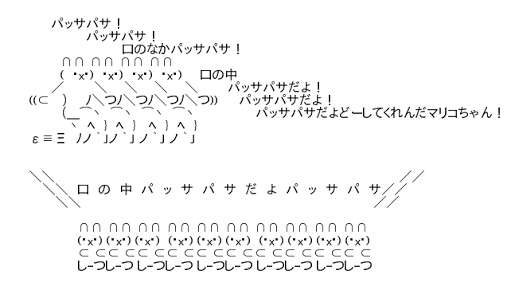 パッサパサ！
パッサパサ！
口のなかパッサパサ！
∩∩ ∩∩ ∩∩ ∩∩
( ･x･) ･x･) ･x･) ･x･) 口の中
／ ＼ ＼ ＼ ＼ パッサパサだよ！
((⊂ ) ﾉ＼つﾉ＼つﾉ＼つﾉ＼つ)) パッサパサだよ！
(＿⌒ヽ ⌒ヽ ⌒ヽ ⌒ヽ パッサパサだよどーしてくれんだマリコちゃん！
ヽ ヘ } ヘ } ヘ } ヘ }
ε≡Ξ ﾉノ `J ノ `J ノ `J ノ `J
＼＼ ／／
＼＼ 口の中パッサパサだよパッサパサ ／／
＼＼ ／／
∩∩ ∩∩ ∩∩ ∩∩ ∩∩ ∩∩ ∩∩ ∩∩ ∩∩ ∩∩
(･x･) (･x･) (･x･) (･x･) (･x･) (･x･) (･x･) (･x･) (･x･) (･x･)
⊂ ⊂ ⊂ ⊂ ⊂ ⊂ ⊂ ⊂ ⊂ ⊂ ⊂ ⊂ ⊂ ⊂ ⊂ ⊂ ⊂ ⊂ ⊂ ⊂
しーつしーつ しーつしーつ しーつしーつ しーつしーつ しーつしーつ